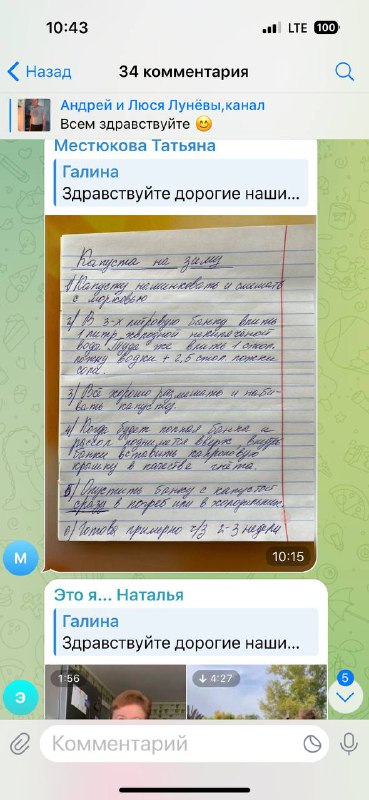 10:43
LTE 100
Назад
34 комментария
Андрей и Люся Лунёвы,канал
Всем здравствуйте 😊
Местюкова Татьяна
Галина
Здравствуйте дорогие наши...
Капуста на зиму
1) Капусту нашинковать и смешать
с морковью
2) В 3-х литровую банку влить
1 литр холодной некипячёной
воды. Туда же влить 1 стол.
ложку водки + 2,5 стол. ложки
соли.
3) Всё хорошо размешать и наби-
вать капусту.
4) Когда будет полная банка и
рассол поднимется вверх, внутрь
банки вставить капроновую
крышку в качестве гнёта.
5) Опустить банку с капустой
сразу в погреб или в холодильник.
6) Готова примерно ч/з 2-3 недели
10:15
М
Это я... Наталья
Галина
Здравствуйте дорогие наши...
1:56
4:27
Э
5
Комментарий